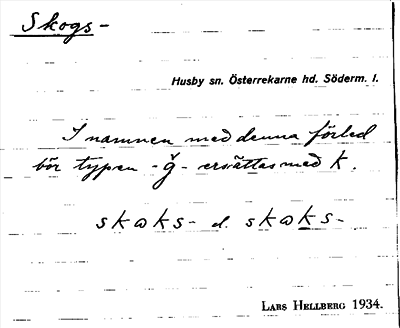 Skogs-
Husby sn. Österrekarne hd. Söderm. l.
I namnen med denna förled
bör typen -ğ- ersättas med k.
skɷks- el. skɷks-
LARS HELLBERG 1934.